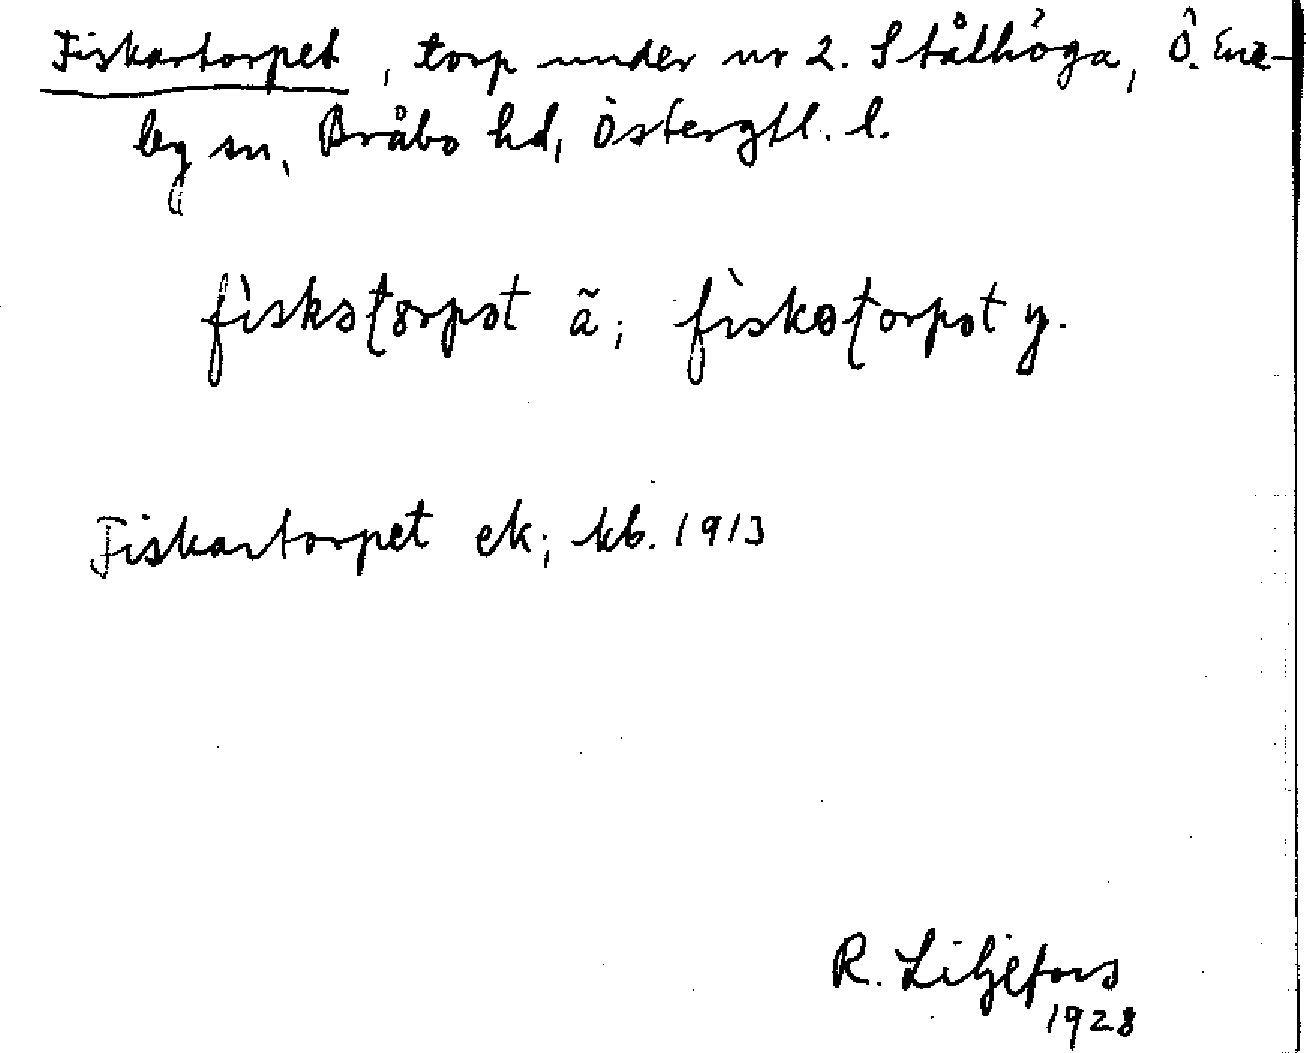 Fiskartorpet, torp under nr 2. Stålhöga, Ö. Ene-
by sn, Bråbo hd, Östergtl. l.
fìskəʈɵrpət ä̃; fìskəʈorpət y.
Fiskartorpet ek; kb. 1913
R. Liljefors
1928